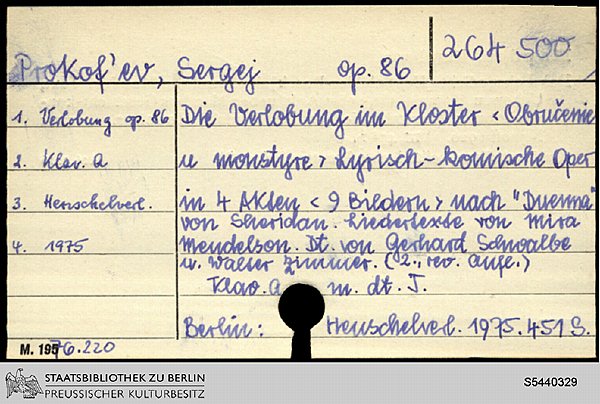 264 500
Prokof'ev, Sergej op. 86
1. Verlobung op. 86
2. Klav. A
3. Henschelverl.
4. 1975
Die Verlobung im Kloster < Obručenie
u monstyre > Lyrisch-komische Oper
in 4 Akten < 9 Bildern > nach "Duenna"
von Sheridan. Liedertexte von Mira
Mendelson. Dt. von Gerhard Schwalbe
u. Walter Zimmer. (2., rev. Aufl.)
Klav. A m. dt. T.
Berlin: Henschelverl. 1975. 451 S.
M. 1976.220
STAATSBIBLIOTHEK ZU BERLIN
PREUSSISCHER KULTURBESITZ
S5440329